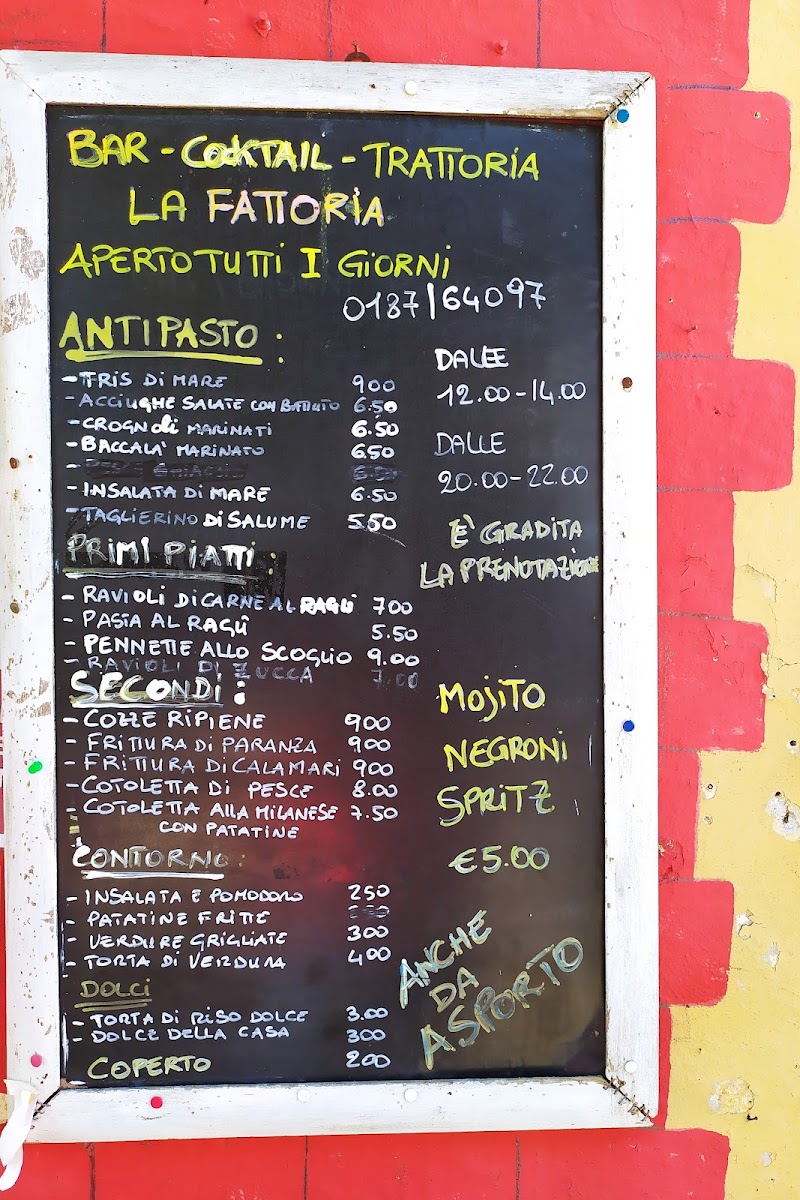 BAR - COCKTAIL - TRATTORIA
LA FATTORIA
APERTO TUTTI I GIORNI
0187/64097
ANTIPASTO :
- TRIS DI MARE 900
- ACCIUGHE SALATE CON BATTUTO 6.50
- CROGNOLI MARINATI 6.50
- BACCALA' MARINATO 650
- INSALATA DI MARE 6.50
- TAGLIERINO DI SALUME 5.50
DALLE
12.00-14.00
DALLE
20.00-22.00
E' GRADITA
LA PRENOTAZIONE
PRIMI PIATTI :
- RAVIOLI DI CARNE AL RAGÙ 700
- PASTA AL RAGÛ 5.50
- PENNETTE ALLO SCOGLIO 9.00
- RAVIOLI DI ZUCCA 7.00
SECONDI :
- COZZE RIPIENE 900
- FRITTURA DI PARANZA 900
- FRITTURA DI CALAMARI 900
- COTOLETTA DI PESCE 8.00
- COTOLETTA ALLA MILANESE 7.50
CON PATATINE
MOJITO
NEGRONI
SPRITZ
€5.00
CONTORNO :
- INSALATA E POMODORO 250
- PATATINE FRITTE
- VERDURE GRIGLIATE 300
- TORTA DI VERDURA 400
DOLCI
- TORTA DI RISO DOLCE 3.00
- DOLCE DELLA CASA 300
COPERTO 200
ANCHE
DA
ASPORTO